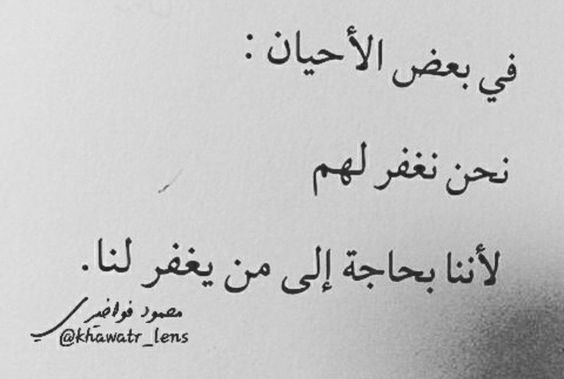 في بعض الأحيان :
نحن نغفر لهم
لأننا بحاجة إلى من يغفر لنا.
محمود فواضيري
@khawatr_lens